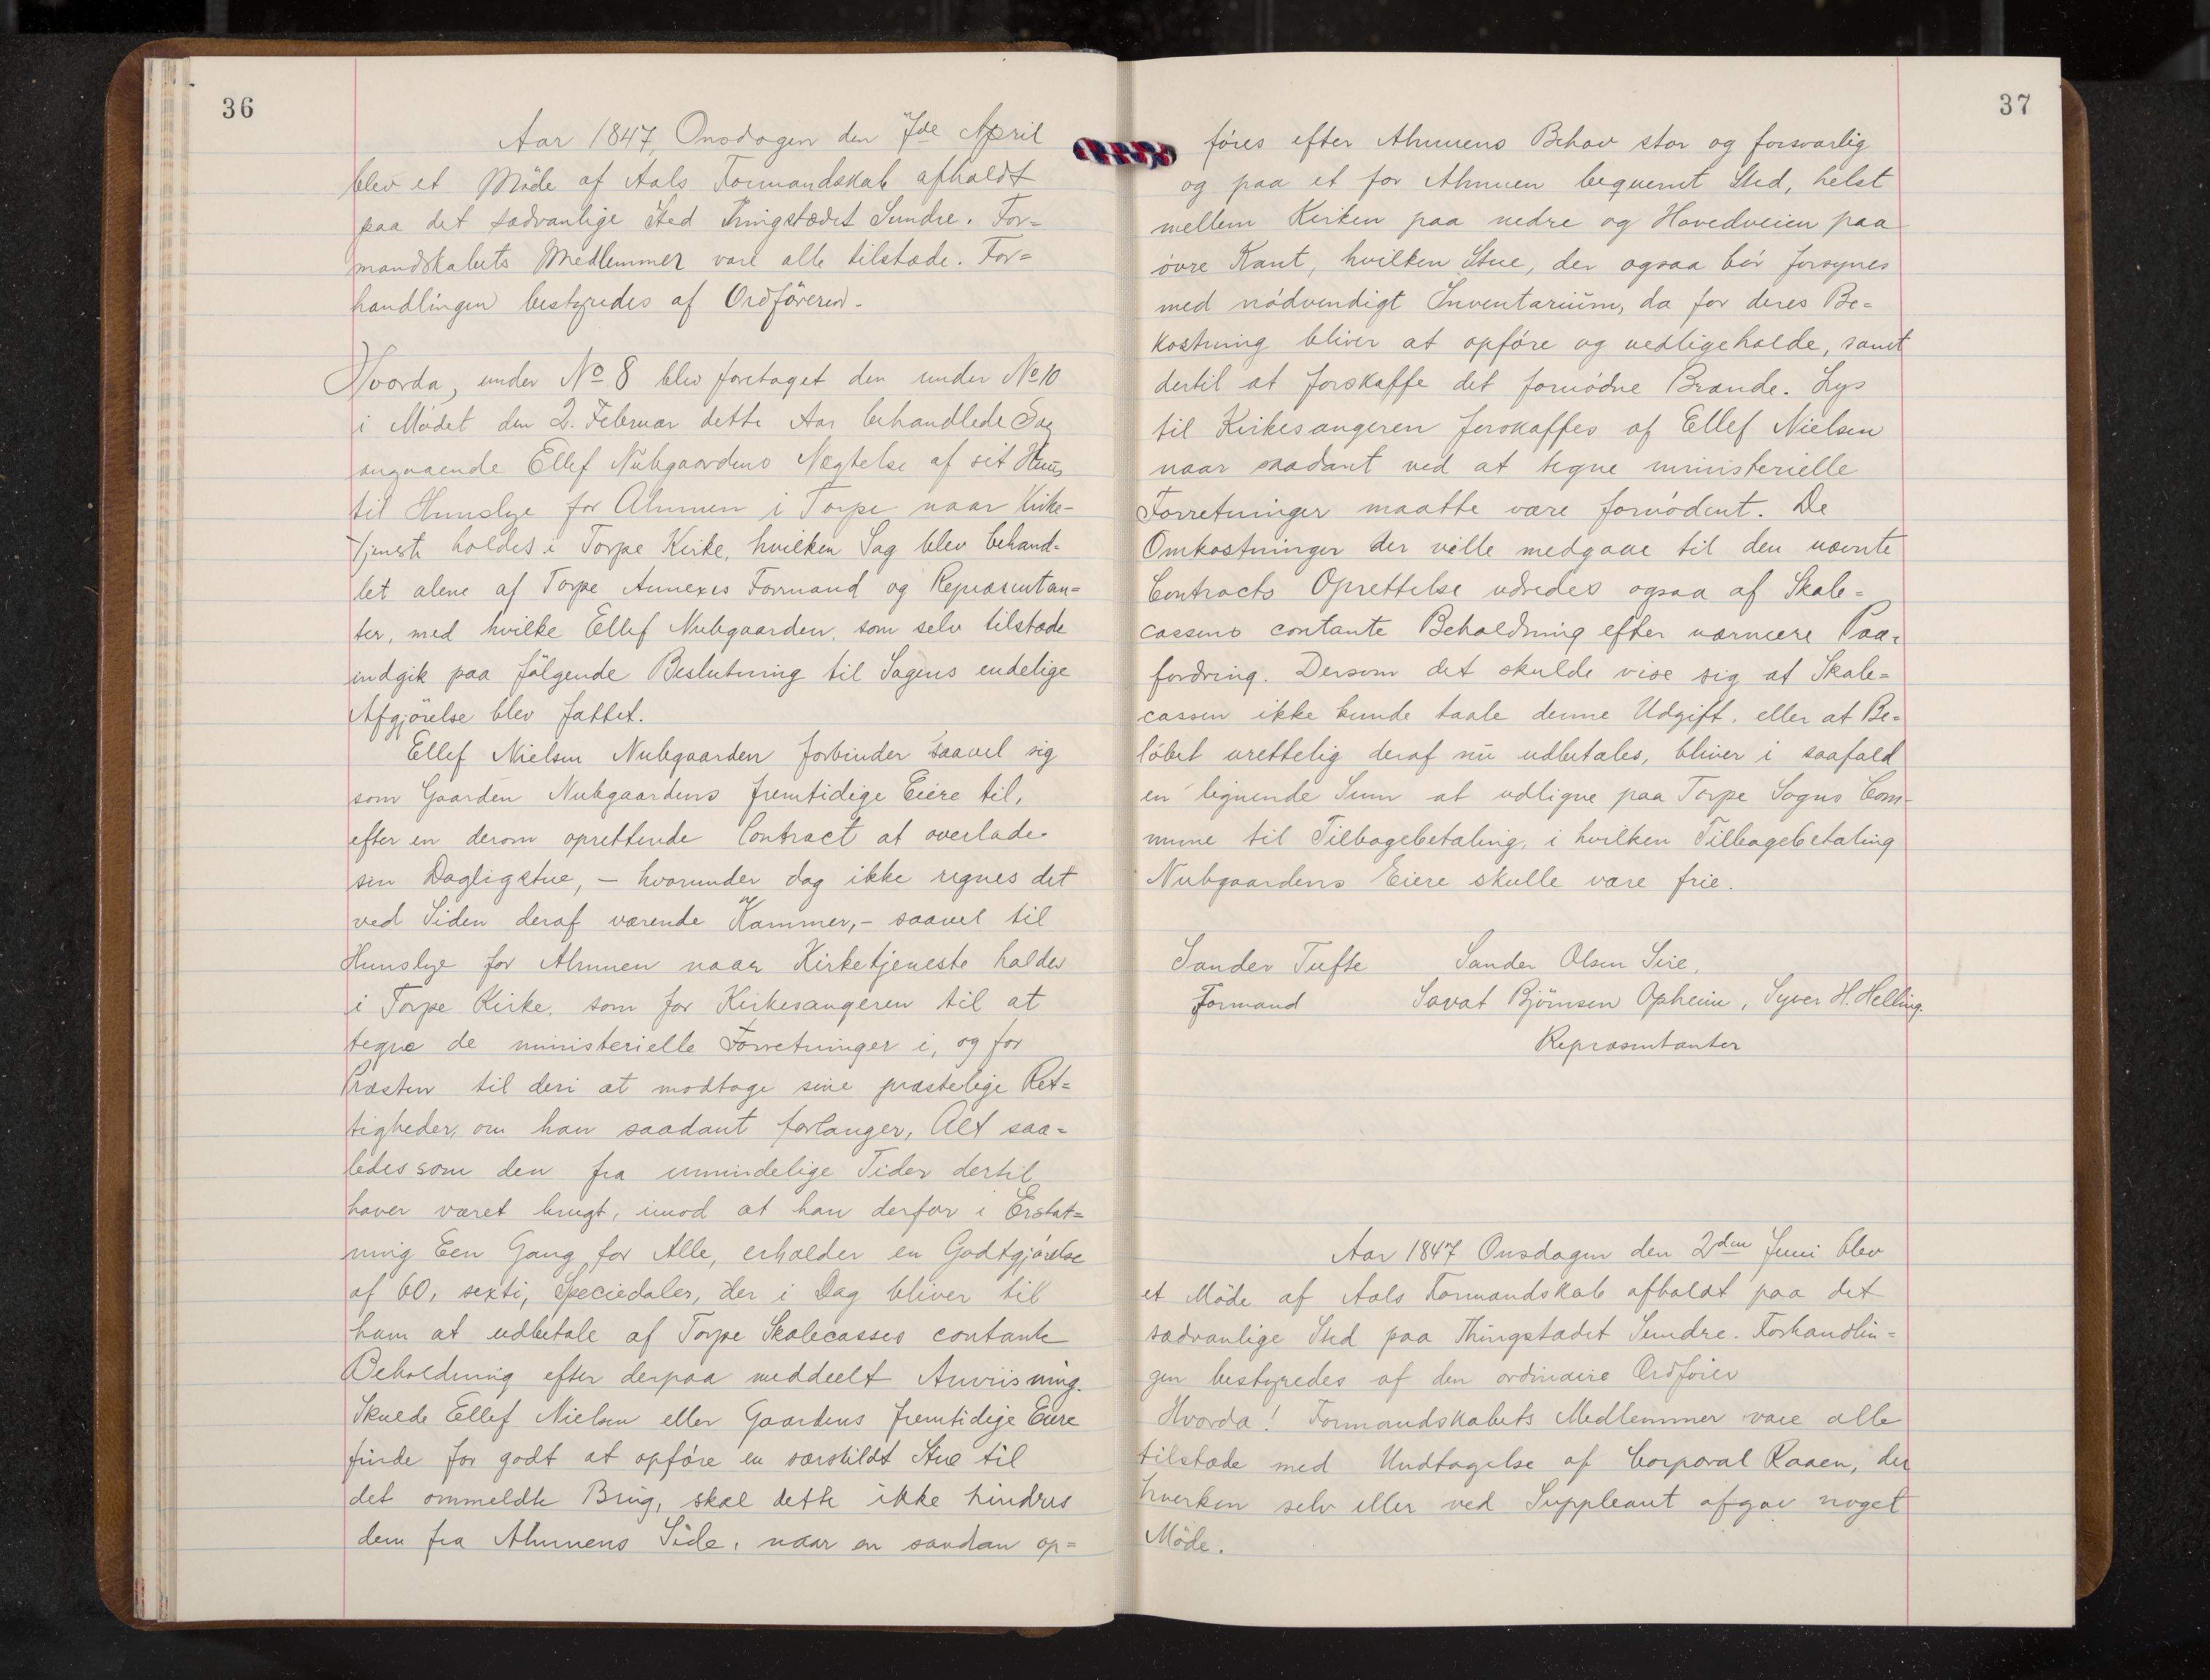 36
Aar 1847, Onsdagen den 7de April
blev et Möde af Aals Formandskab afholdt
paa det sædvanlige Sted Thingstædet Sundre. For=
mandskabets Medlemmer vare alle tilstæde. For=
handlingen bestyredes af Ordföreren.
Hvorda, under No 8 blev foretaget den under No 10
i Mödet den 2. Februar dette Aar behandlede Sag
angaaende Ellef Nubgaardens Nægtelse af sit Huus
til Huuslye for Almuen i Torpe naar Kirke-
Tjeneste holdes i Torpe Kirke, hvilken Sag blev behand-
let alene af Torpe Annexes Formand og Repræsentan=
ter, med hvilke Ellef Nubgaarden, som selv tilstæde
indgik paa fölgende Beslutning til Sagens endelige
Afgjörelse blev fattet.
Ellef Nielsen Nubgaarden forbinder saavel sig
som Gaarden Nubgaardens fremtidige Eiere til,
efter en derom oprettende Contract at overlade
sin Dagligstue, - hvorunder dog ikke regnes det
ved Siden deraf værende Kammer, - saavel til
Huuslye for Almuen naar Kirketjeneste holdes
i Torpe Kirke, som for Kirkesangeren til at
tegne de ministerielle Forretninger i, og for
Præsten til deri at modtage sine præstelige Ret=
tigheder, om han saadant forlanger, Alt saa=
ledes som den fra umindelige Tider dertil
haver været brugt, imod at han derfor i Erstat=
ning Een Gang for Alle, erholder en Godtgjörelse
af 60, sexti, Speciedaler, der i Dag bliver til
ham at udbetale af Torpe Skolecasses contante
Beholdning efter derpaa meddeelt Anviisning.
Skulde Ellef Nielsen eller Gaardens fremtidige Eiere
finde for godt at opföre en særskildt Stue til
det ommeldte Brug, skal dette ikke hindres
dem fra Almuens Side, naar en saadan op=
37
föres efter Almuens Behov stor og forsvarlig
og paa et for Almuen beqvemt Sted, helst
mellem Kirken paa nedre og Hovedveien paa
övre Kant, hvilken Stue, der ogsaa bör forsynes
med nödvendigt Inventarium, da for deres Be=
kostning bliver at opföre og vedligeholde, samt
dertil at forskaffe det fornödne Brænde. Lys
til Kirkesangeren forskaffes af Ellef Nielsen
naar saadant ved at tegne ministerielle
Forretninger maatte være fornödent. De
Omkostninger der ville medgaae til den nævnte
Contracts Oprettelse udredes ogsaa af Skole=
cassens contante Beholdning efter nærmere Paa=
fordring. Dersom det skulde vise sig at Skole=
cassen ikke kunde taale denne Udgift, eller at Be=
löbet urettelig deraf nu udbetales, bliver i saafald
en lignende Sum at udligne paa Torpe Sogns Com-
mune til Tilbagebetaling, i hvilken Tilbagebetaling
Nubgaardens Eiere skulle være frie.
Sander Tufte Sander Olsen Sire,
Formand Savat Björnsen Opheim, Syver H. Helling.
Repræsentanter
Aar 1847 Onsdagen den 2den Juni blev
et Möde af Aals Formandskab afholdt paa det
sædvanlige Sted paa Thingstædet Sundre. Forhandlin=
gen bestyredes af den ordinaire Ordförer
Hvorda! Formandskabets Medlemmer vare alle
tilstæde med Undtagelse af Corporal Raaen, der
hverken selv eller ved Suppleant afgav noget
Möde.